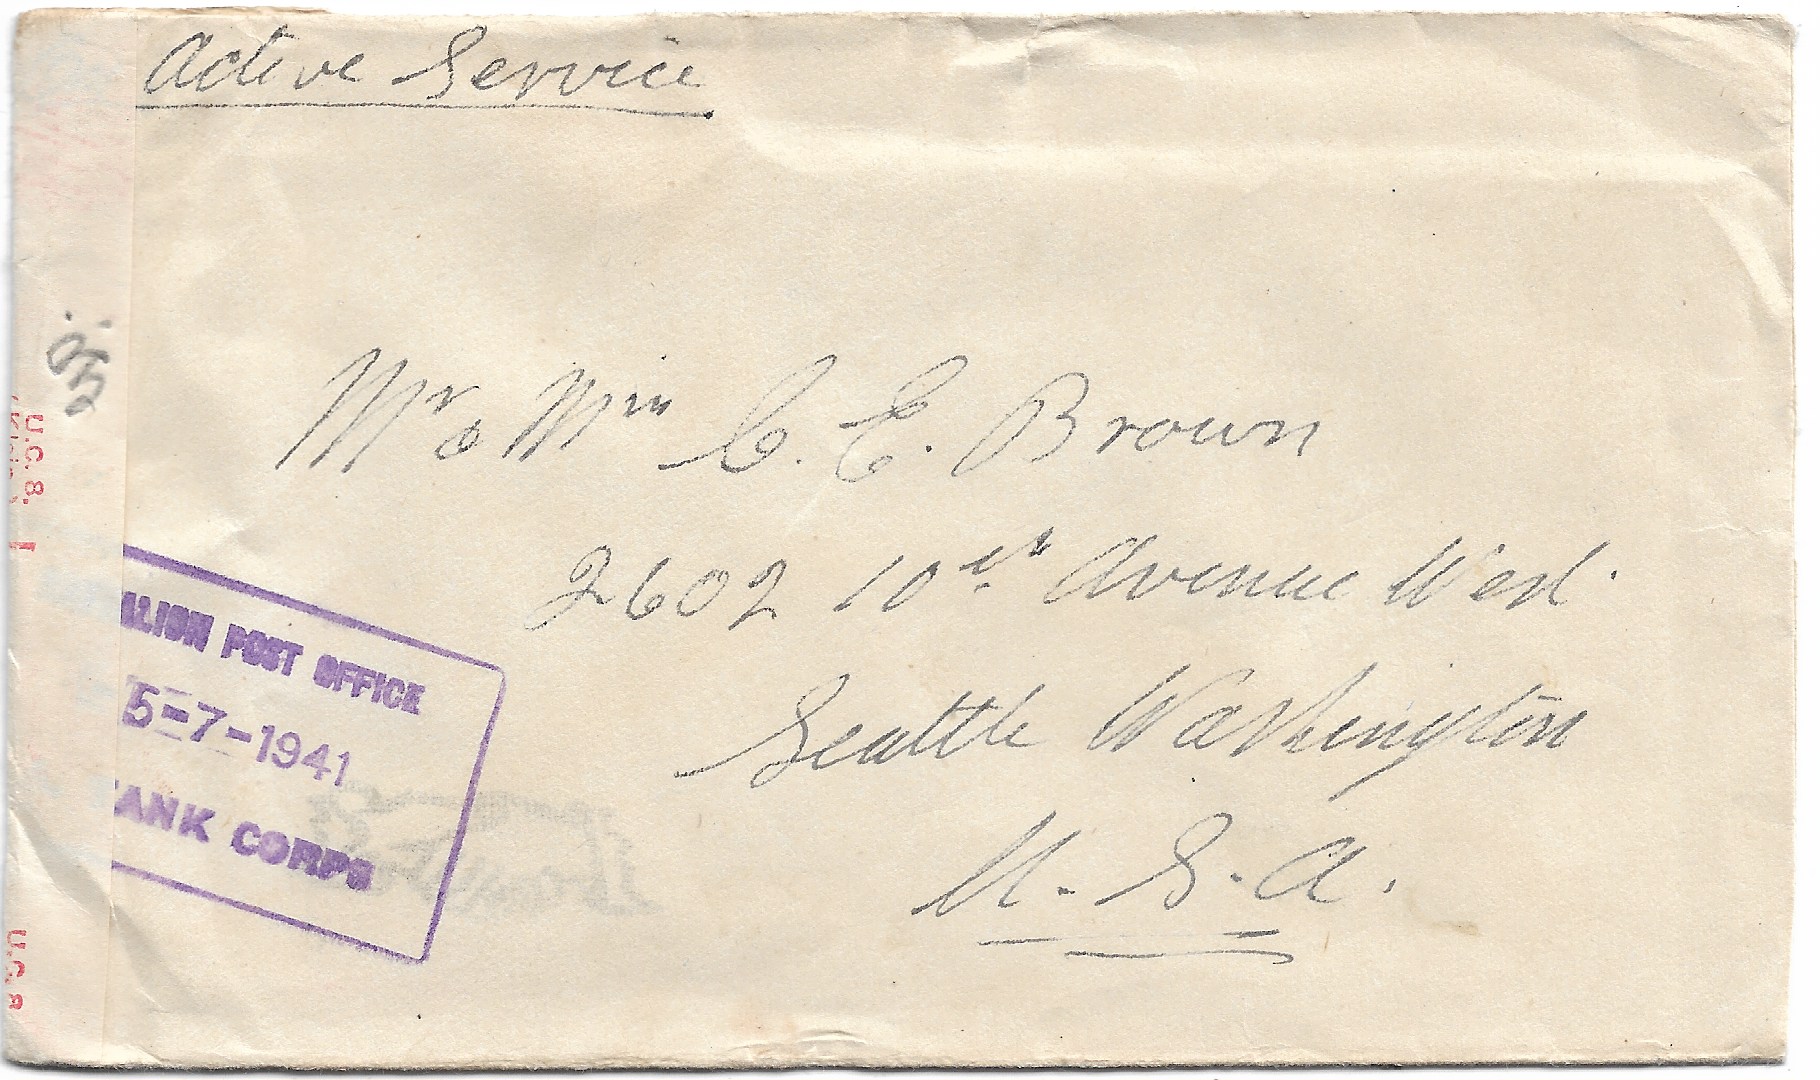 Active Service
Mr & Mrs C. E. Brown
2602 10th Avenue West.
Seattle Washington
U. S. A.
U.C.8.
ALION POST OFFICE
5-7-1941
TANK CORPS
U.C.8